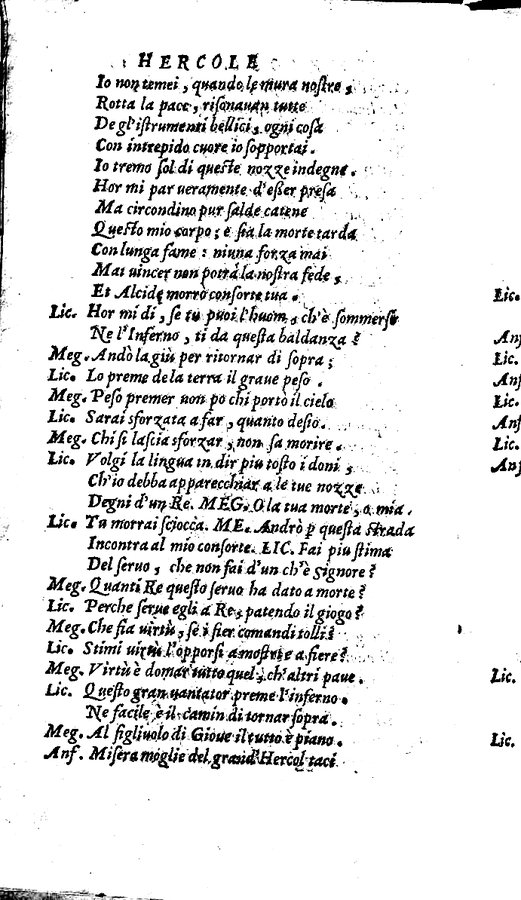 HERCOLE
Io non temei, quando le mura nostre,
Rotta la pace, risonauan tutte
De gl'istrumenti bellici, ogni cosa
Con intrepido cuore io sopportai.
Io tremo sol di queste nozze indegne.
Hor mi par ueramente d'esser presa
Ma circondino pur salde catene
Questo mio corpo; e sia la morte tarda
Con lunga fame: niuna forza mai
Mai uincer non potrà la nostra fede,
Et Alcide morrò consorte tua.
Lic. Hor mi di, se tu puoi l'huom, ch'è sommerso
Ne l'Inferno, ti da questa baldanza?
Meg. Andò la giù per ritornar di sopra;
Lic. Lo preme de la terra il graue peso.
Meg. Peso premer non po chi portò il cielo
Lic. Sarai sforzata a far, quanto desio.
Meg. Chi si lascia sforzar, non sa morire.
Lic. Volgi la lingua in dir piu tosto i doni,
Ch'io debba apparecchiar a le tue nozze
Degni d'un Re. MEG. O la tua morte, o mia.
Lic. Tu morrai sciocca. ME. Andrò p questa strada
Incontra al mio consorte. LIC. Fai piu stima
Del seruo, che non fai d'un ch'è Signore?
Meg. Quanti Re questo seruo ha dato a morte?
Lic. Perche serue egli a Re, patendo il giogo?
Meg. Che fia uirtù, se i fier comandi tolli?
Lic. Stimi uirtù l'opporsi a mostri e a fiere?
Meg. Virtù è domar tutto quel, ch'altri paue.
Lic. Questo gran uantator preme l'inferno.
Ne facile è il camin di tornar sopra.
Meg. Al figliuolo di Gioue il tutto è piano.
Anf. Misera moglie del grand'Hercol taci
Lic.
Anf
Lic.
Anf
Lic.
Anf
Lic.
Anf
Lic.
Lic.